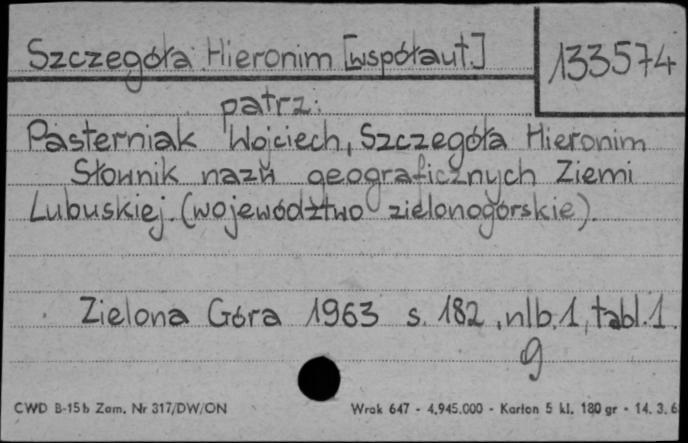 Szczegóła Hieronim [współaut.]
133574
patrz:
Pasterniak Wojciech, Szczegóła Hieronim
Słownik nazw geograficznych Ziemi
Lubuskiej. (województwo zielonogórskie).
Zielona Góra 1963 s. 182, nlb. 1, tabl. 1.
g
CWD B-15b Zam. Nr 317/DW/ON
Wrak 647 - 4.945.000 - Karton 5 kl. 180 gr - 14. 3. 6